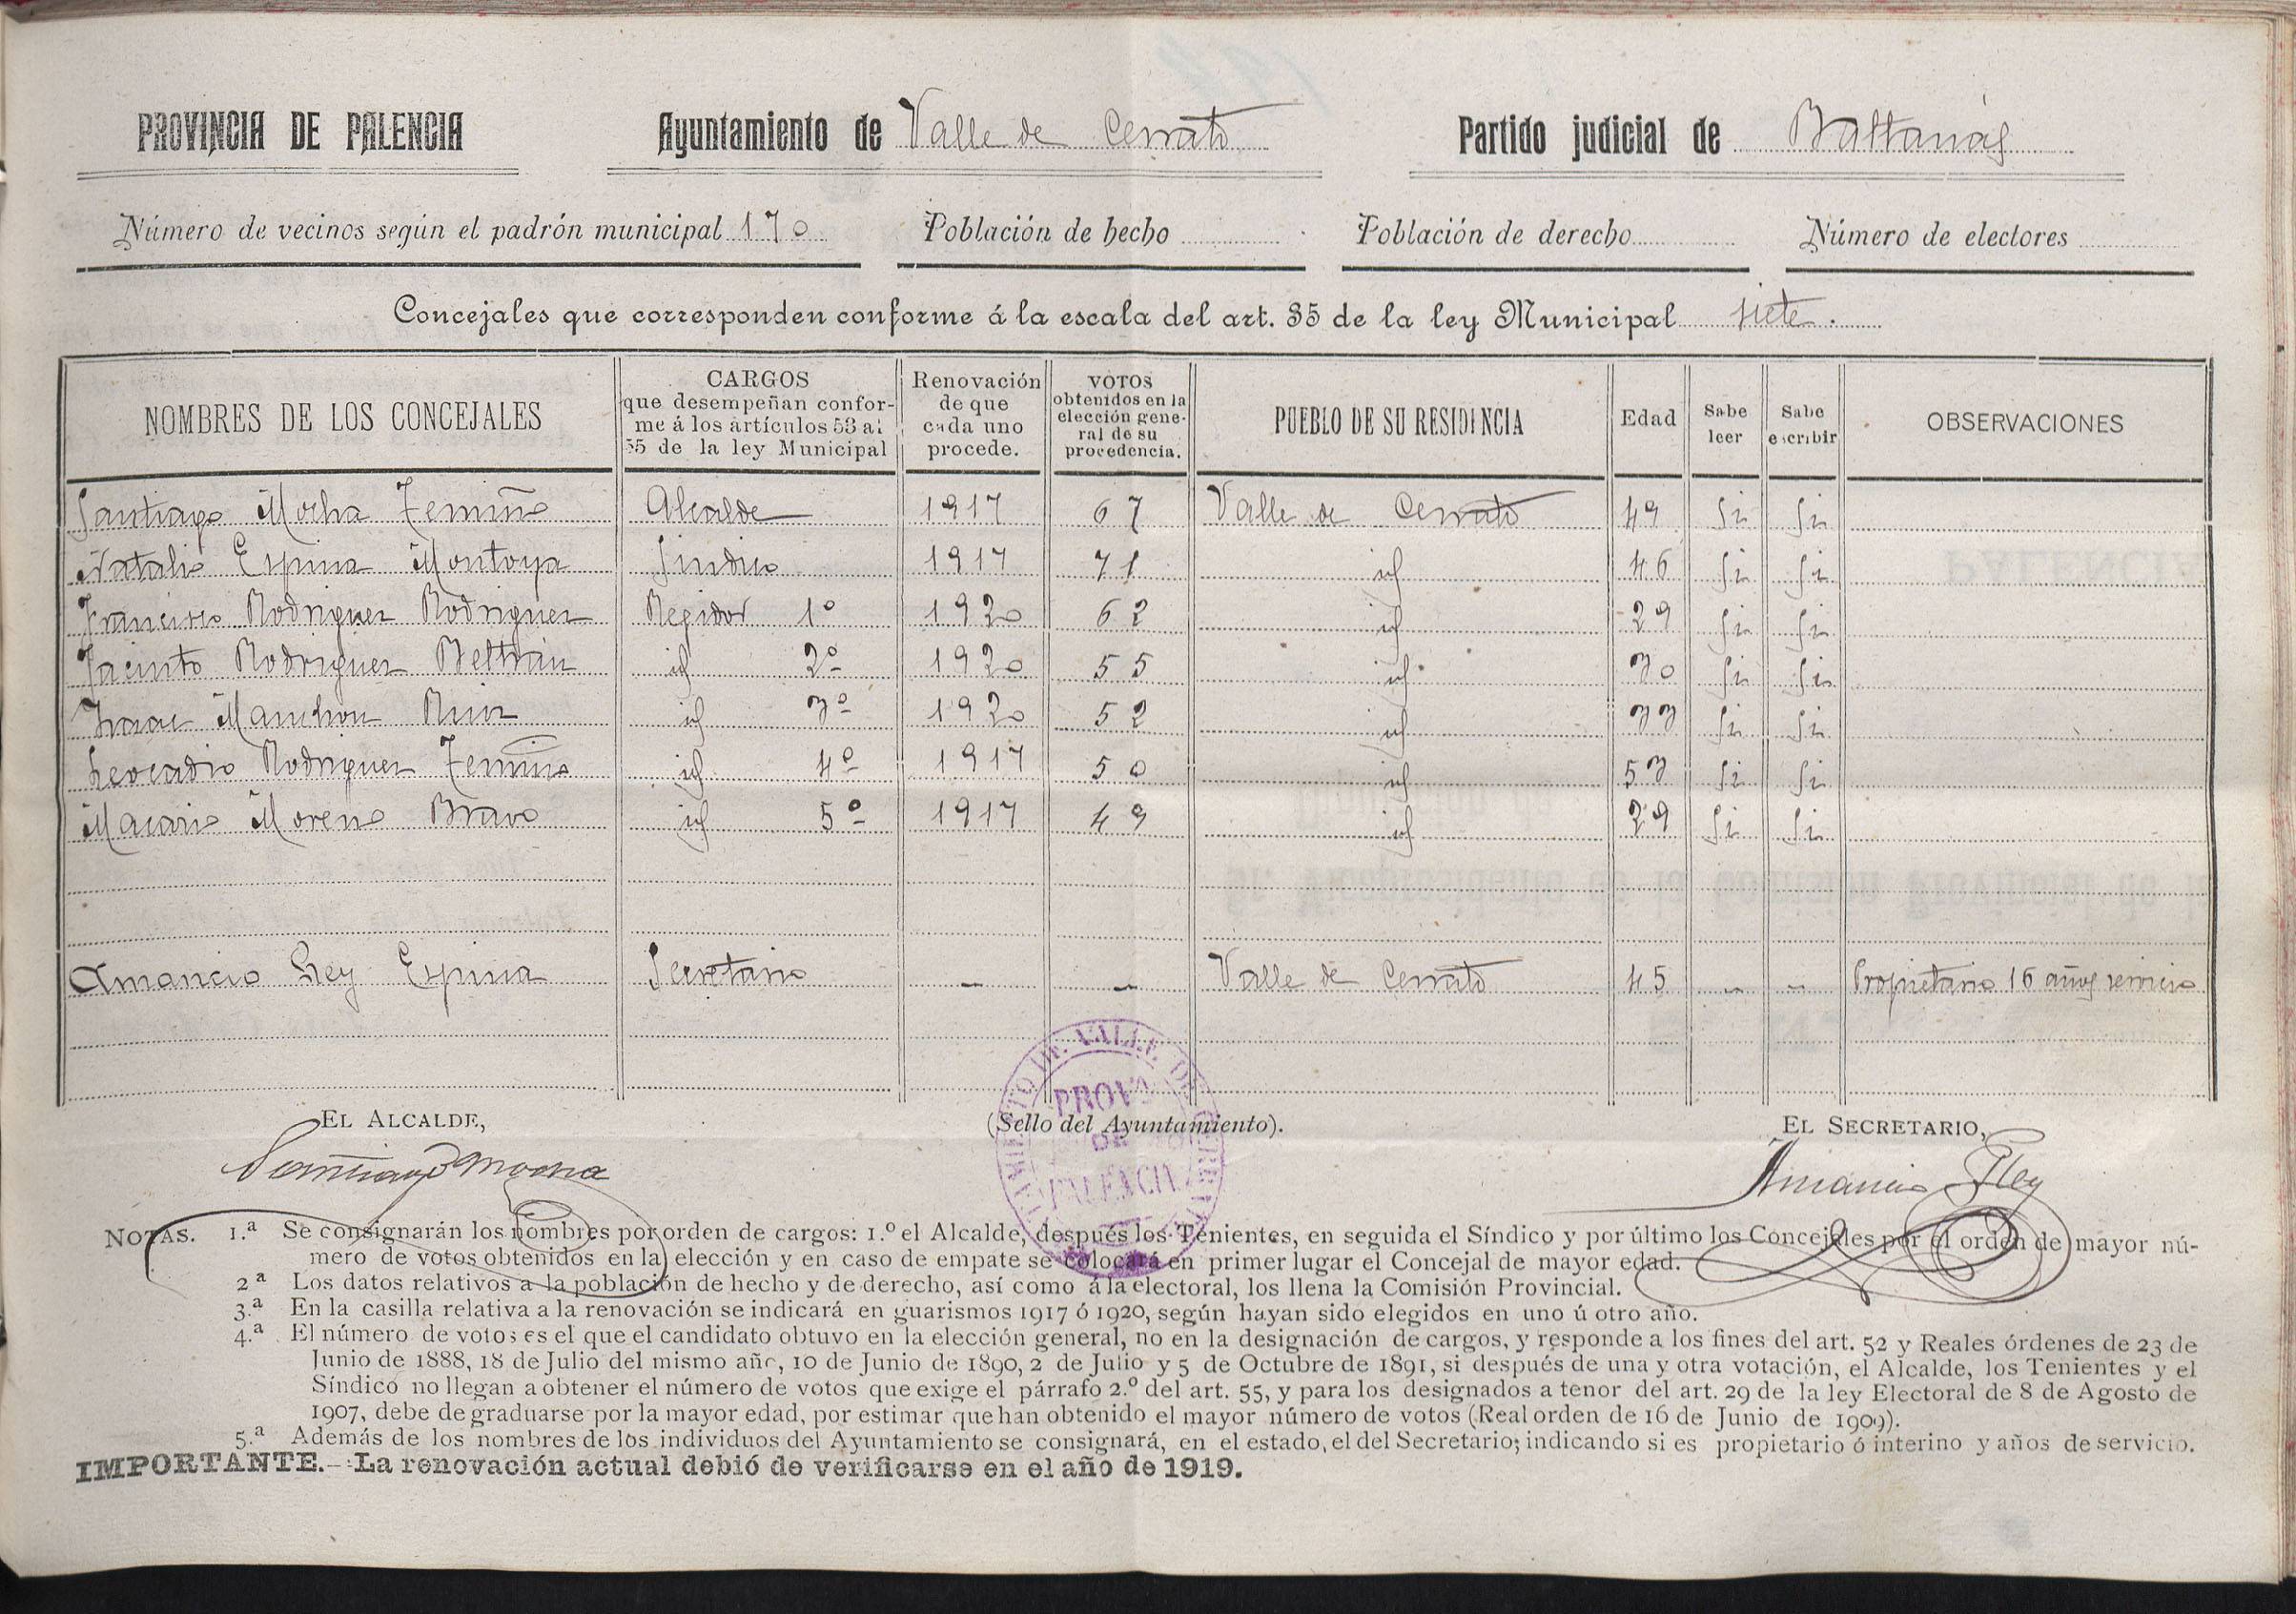 PROVINCIA DE PALENCIA Ayuntamiento de Valle de Cerrato Partido judicial de Baltanás
Número de vecinos según el padrón municipal 170 Población de hecho Población de derecho Número de electores
Concejales que corresponden conforme á la escala del art. 35 de la ley Municipal siete.
NOMBRES DE LOS CONCEJALES CARGOS que desempeñan conforme á los artículos 53 al 55 de la ley Municipal Renovación de que cada uno procede. VOTOS obtenidos en la elección general de su procedencia. PUEBLO DE SU RESIDENCIA Edad Sabe leer Sabe escribir OBSERVACIONES
Santiago Mocha Temiño Alcalde 1917 67 Valle de Cerrato 49 Si Si
Natalio Espina Montoya Sindico 1917 71 id 46 Si Si
Francisco Rodriguez Rodriguez Regidor 1º 1920 62 id 29 Si Si
Jacinto Rodriguez Beltrán id 2º 1920 55 id 30 Si Si
Isaac Manchon Ruiz id 3º 1920 52 id 33 Si Si
Leocadio Rodriguez Temiño id 4º 1917 50 id 53 Si Si
Macario Moreno Bravo id 5º 1917 49 id 29 Si Si
Amancio Rey Espina Secretario - - Valle de Cerrato 45 - - Propietario 16 años servicio
EL ALCALDE, (Sello del Ayuntamiento). EL SECRETARIO,
Santiago Mocha Amancio Rey
AYUNTAMIENTO DE VALLE DE CERRATO
PROVª
DE
PALENCIA
NOTAS. 1.ª Se consignarán los nombres por orden de cargos: 1.º el Alcalde, después los Tenientes, en seguida el Síndico y por último los Concejales por el orden de mayor nú-
mero de votos obtenidos en la elección y en caso de empate se colocará en primer lugar el Concejal de mayor edad.
2ª Los datos relativos a la población de hecho y de derecho, así como á la electoral, los llena la Comisión Provincial.
3.ª En la casilla relativa a la renovación se indicará en guarismos 1917 ó 1920, según hayan sido elegidos en uno ú otro año.
4.ª El número de votos es el que el candidato obtuvo en la elección general, no en la designación de cargos, y responde a los fines del art. 52 y Reales órdenes de 23 de
Junio de 1888, 18 de Julio del mismo año, 10 de Junio de 1890, 2 de Julio y 5 de Octubre de 1891, si después de una y otra votación, el Alcalde, los Tenientes y el
Síndico no llegan a obtener el número de votos que exige el párrafo 2.º del art. 55, y para los designados a tenor del art. 29 de la ley Electoral de 8 de Agosto de
1907, debe de graduarse por la mayor edad, por estimar que han obtenido el mayor número de votos (Real orden de 16 de Junio de 1909).
5.ª Además de los nombres de los individuos del Ayuntamiento se consignará, en el estado, el del Secretario; indicando si es propietario ó interino y años de servicio.
IMPORTANTE.—La renovación actual debió de verificarse en el año de 1919.